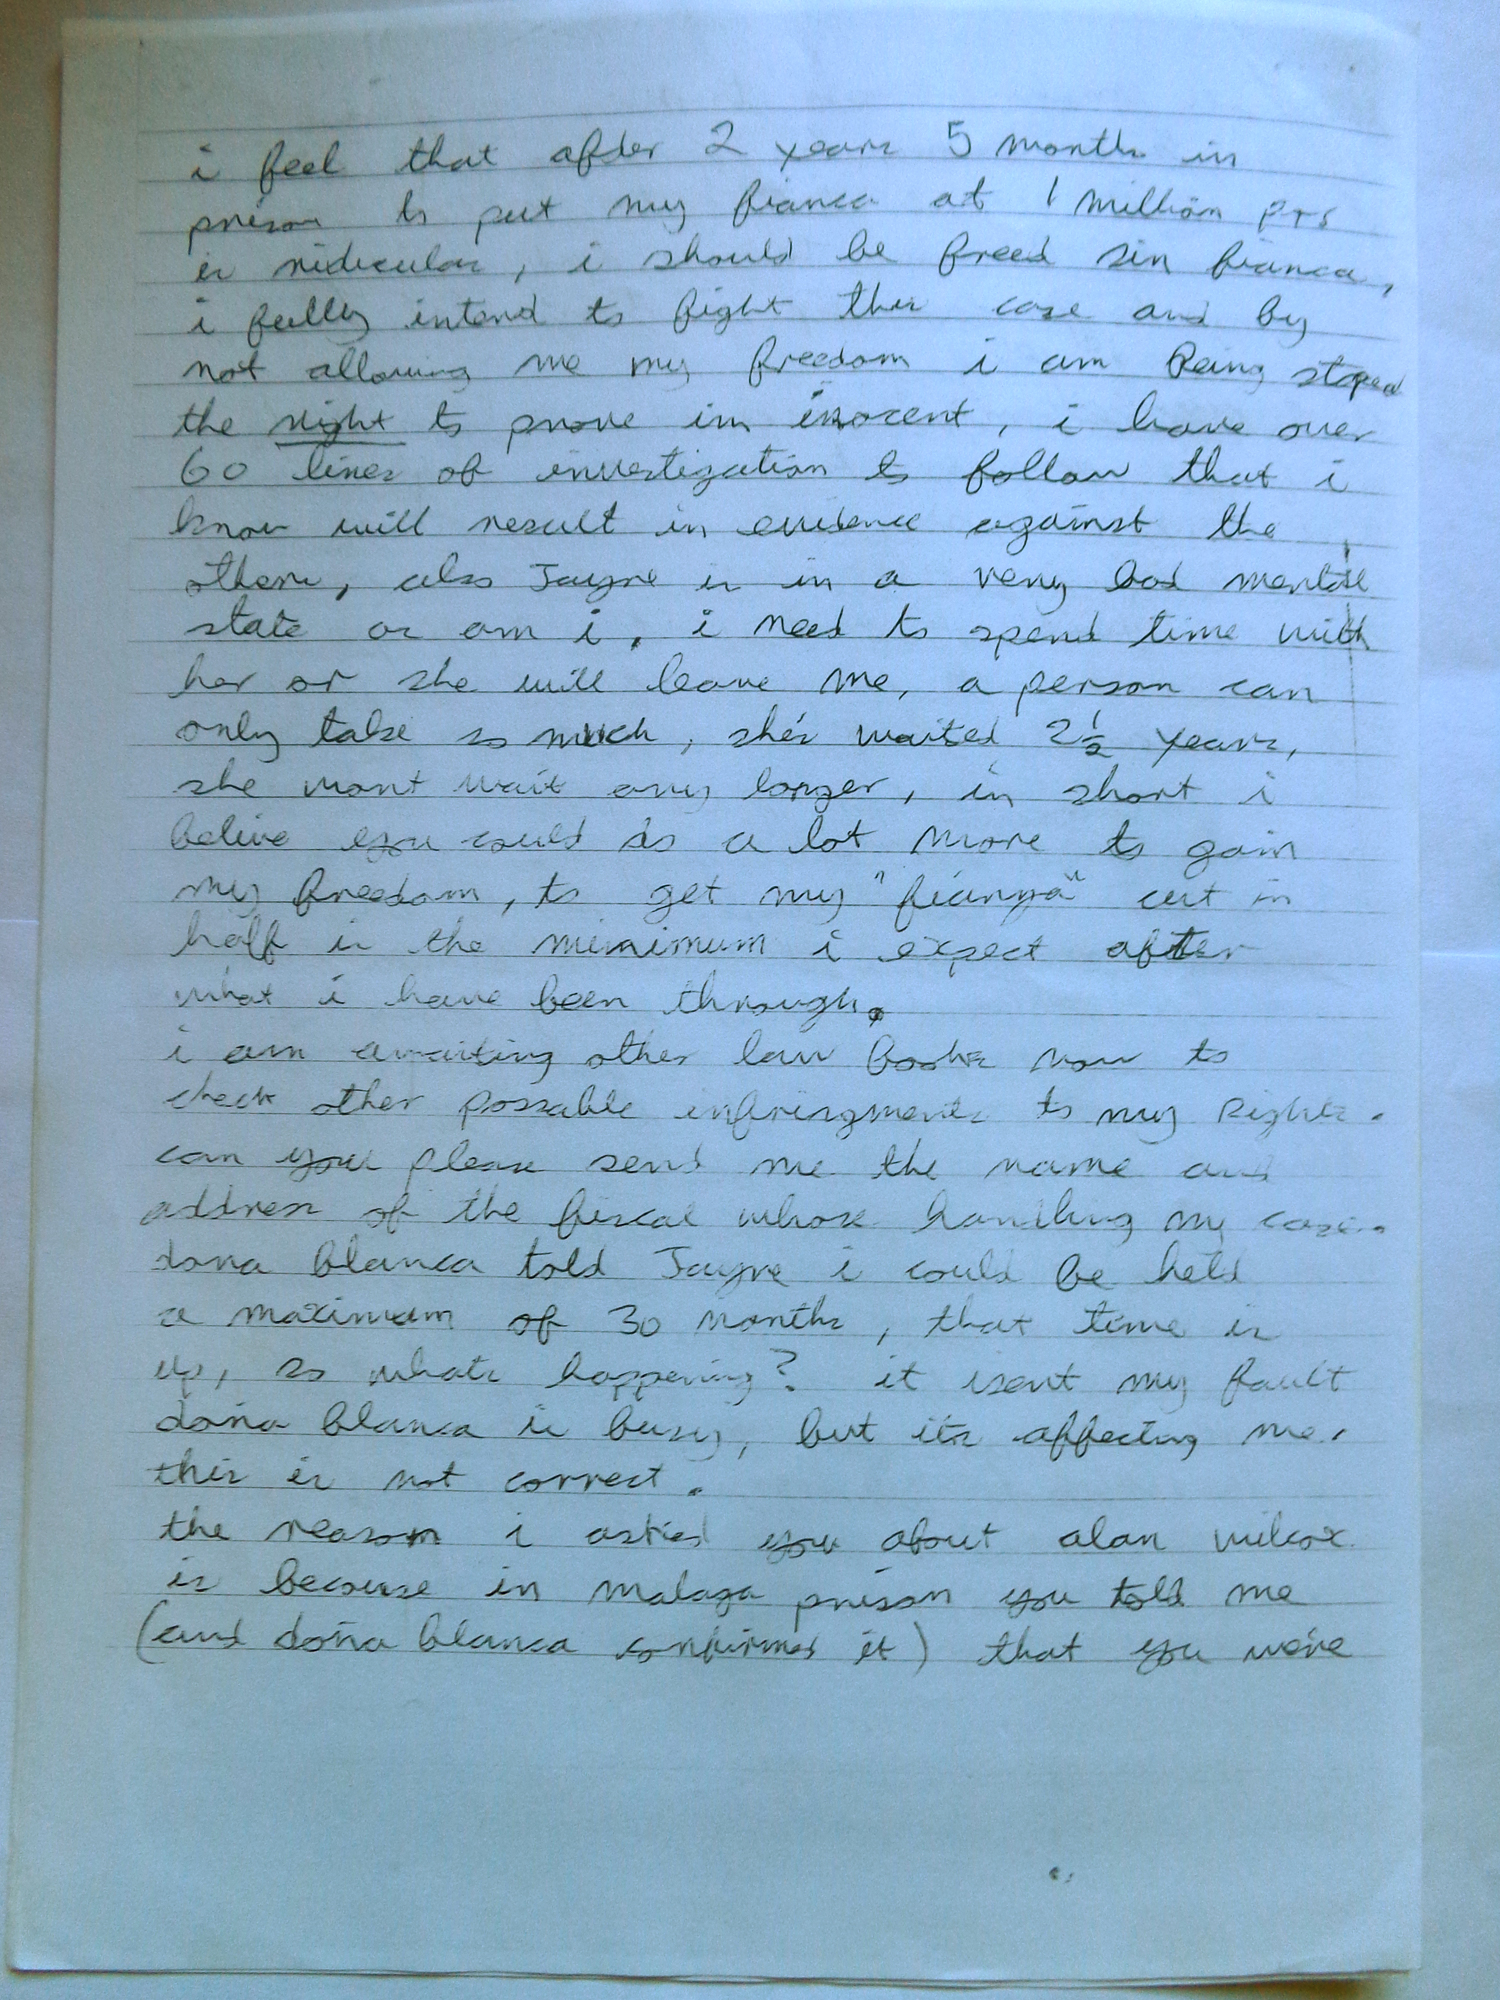 i feel that after 2 years 5 months in
prison to put my fianca at 1 million pts
is ridiculas, i should be freed sin fianca,
i fully intend to fight this case and by
not allowing me my freedom i am being stoped
the right to prove im inocent, i have over
60 lines of investigation to follow that i
know will result in evidence against the
others, also Jayne is in a very bad mental
state as am i, i need to spend time with
her or she will leave me, a person can
only take so much, she's waited 2½ years,
she wont wait any longer, in short i
belive you could do a lot more to gain
my freedom, to get my "fianza" cut in
half is the minimum i expect after
what i have been through.
i am awaiting other law books now to
check other possable infringments to my Rights.
can you please send me the name and
address of the fiscal whose handling my case.
dona blanca told Jayne i could be held
a maximum of 30 months, that time is
up, so whats happening? it isent my fault
doña blanca is busy, but its affecting me,
this is not correct.
the reason i asked you about alan wilcox
is because in malaga prison you told me
(and doña blanca confirmed it) that you were